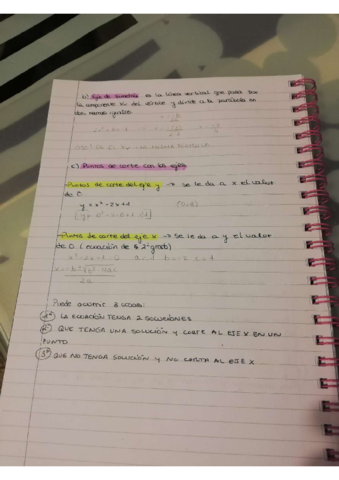 b) Eje de simetría es la línea vertical que pasa por
la componente Xv del vértice y divide a la parábola en
dos ramas iguales.
c) Puntos de corte con los ejes
-Puntos de corte del eje y → se le da a x el valor
de 0.
y = x² - 2x + 1 (0,1)
-Puntos de corte del eje x → se le da a y el valor
de 0 (ecuación de 2º grado)
2a
Puede ocurrir 3 cosas:
1º LA ECUACIÓN TENGA 2 SOLUCIONES
2º QUE TENGA UNA SOLUCIÓN Y CORTE AL EJE X EN UN
PUNTO
3º QUE NO TENGA SOLUCIÓN Y NO CORTA AL EJE X